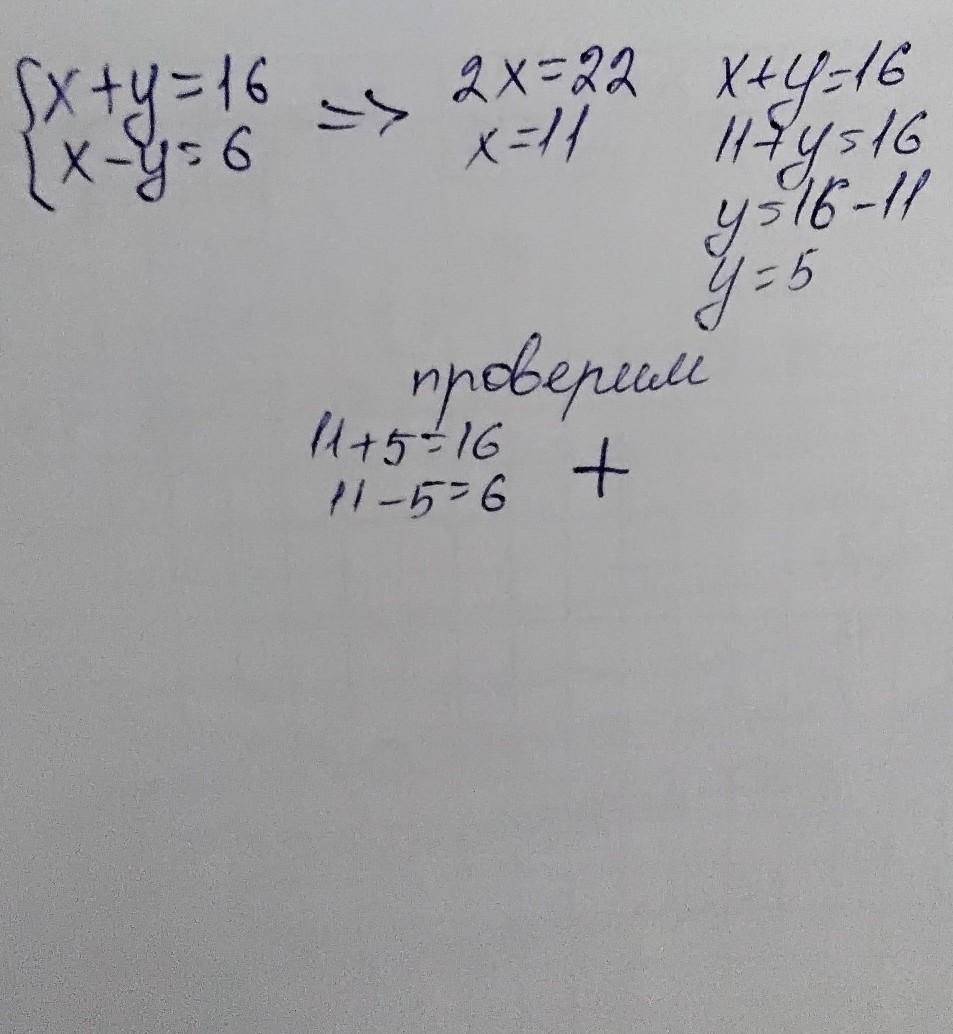 x+y=16
x-y=6
=>
2x=22
x=11
x+y=16
11+y=16
y=16-11
y=5
проверим
11+5=16
11-5=6
+